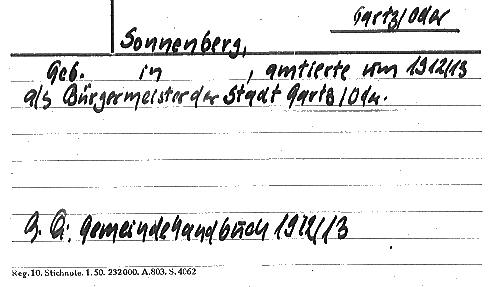 Gartz/Oder
Sonnenberg,
Geb. in , amtierte um 1912/13
als Bürgermeister der Stadt Gartz/Oder.
Gemeindehandbuch 1912/13
Reg. 10. Stichnote. 1. 50. 232000. A.803. S. 4062